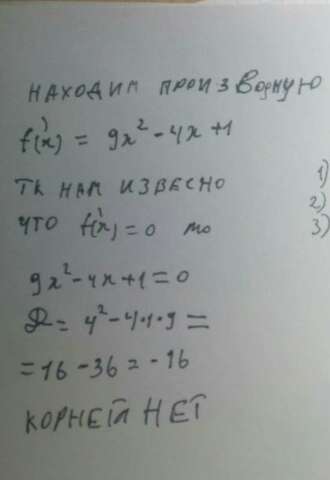 НАХОДИМ ПРОИЗВОДНУЮ
f'(x) = 9x² - 4x + 1
ТК НАМ ИЗВЕСНО
ЧТО f'(x) = 0 то
9x² - 4x + 1 = 0
D = 4² - 4·1·9 =
= 16 - 36 = - 16
КОРНЕЙ НЕТ
1)
2)
3)